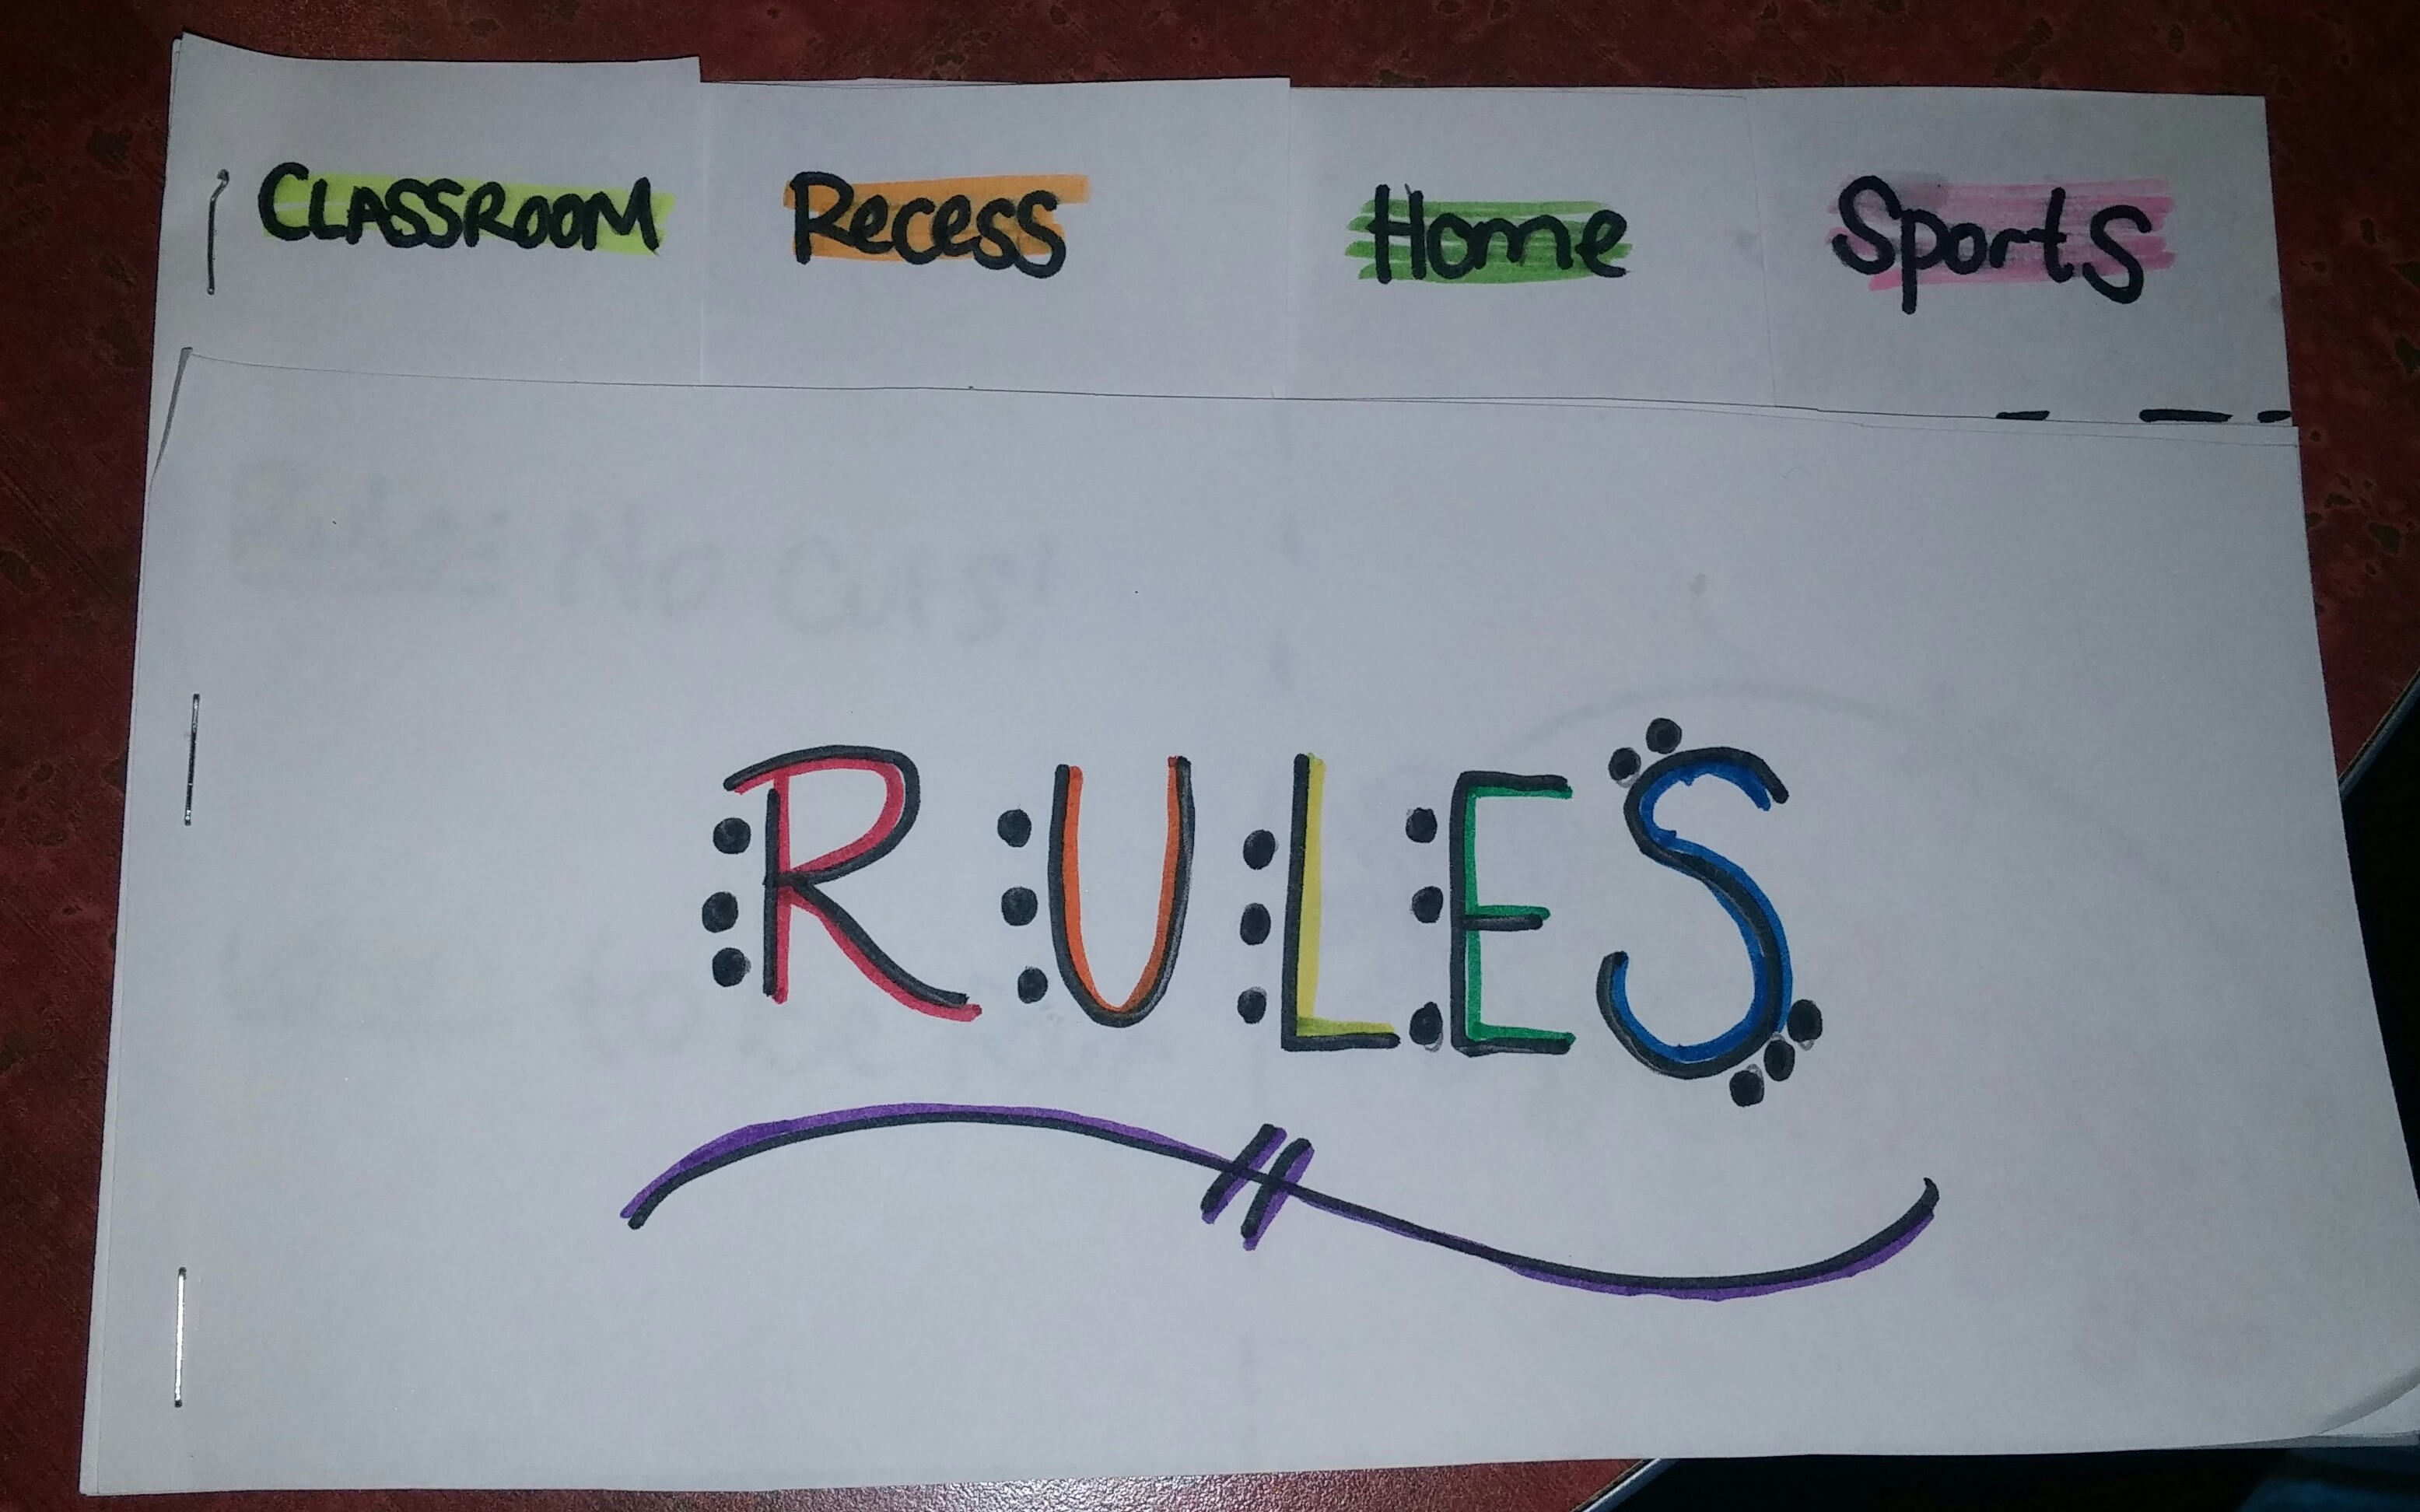 CLASSROOM Recess Home Sports
RULES